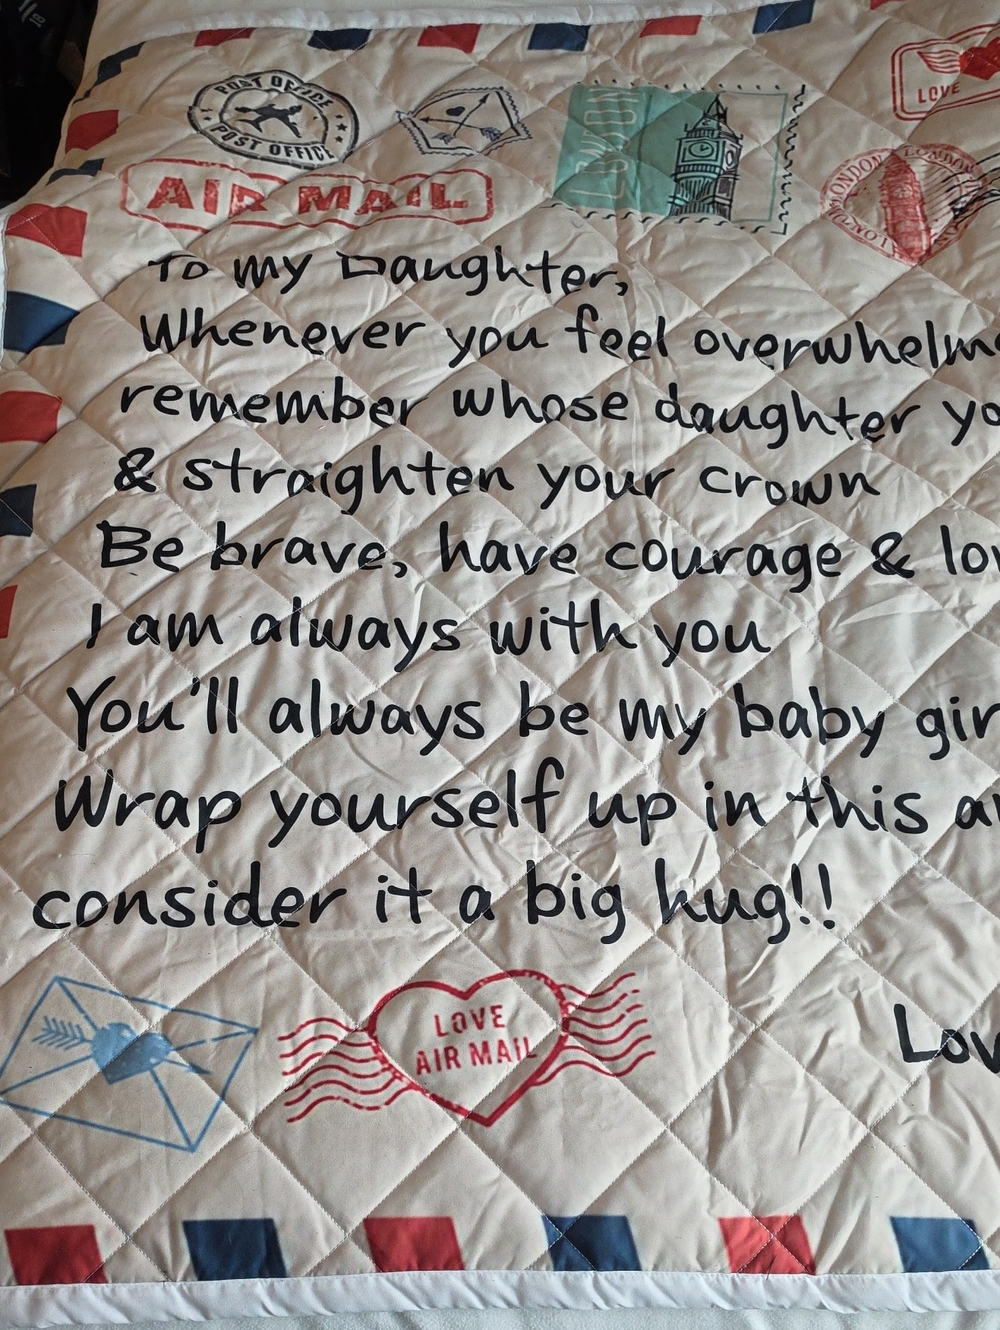 POST OFFICE
POST OFFICE
LONDON
LOVE
AIR MAIL
LONDON
LONDON
To my Daughter,
Whenever you feel overwhelme
remember whose daughter yo
& straighten your crown
Be brave, have courage & lov
I am always with you
You'll always be my baby gir
Wrap yourself up in this an
consider it a big hug!!
LOVE
AIR MAIL
Lov